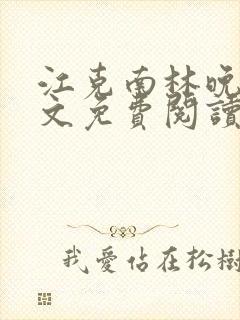 江克南林晚
文免費閱讀
我愛佔在松樹